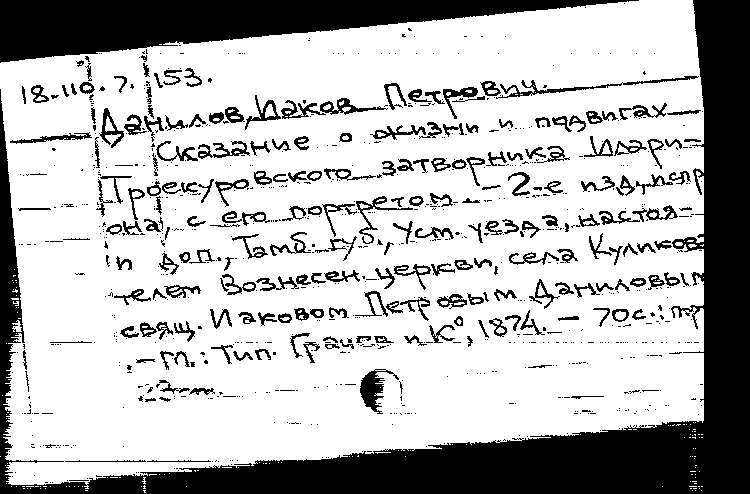 18.110.7.153.
Данилов, Иаков Петрович.
Сказание о жизни и подвигах
Троекуровского затворника Илари-
она, с его портретом. – 2-е изд., испр
и доп., Тамб. губ., Усм. уезда, настоя-
телем Вознесен. церкви, села Куликова
свящ. Иаковом Петровым Даниловым
. – М.: Тип. Грачев и К°, 1874. – 70 с.: порт
23 см.